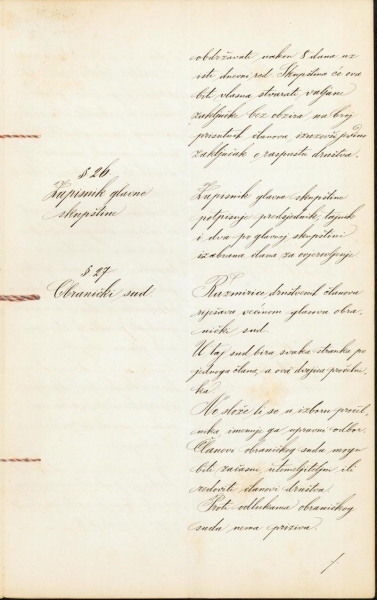 obdržavati nakon 8 dana uz
isti dnevni red. Skupština će ova
biti vlasna stvarati valjane
zaključke bez obzira na broj
prisutnih članova, izuzevši
zaključak o raspustu društva.
§ 26.
Zapisnik glavne
skupštine
Zapisnik glavne skupštine
potpisuje predsjednik, tajnik
i dva po glavnoj skupštini
izabrana člana za ovjerovljenje.
§ 27
Obranički sud
Razmirice društvenih članova
rješava većinom glasova obra-
nički sud.
U taj sud bira svaka stranka po
jednoga člana, a ova dvojica pročelni-
ka.
Ne slože li se u izboru pročel-
nika, imenuje ga upravni odbor.
Članovi obraničkog suda mogu
biti začasni, utemeljiteljni ili
redoviti članovi društva.
Proti odlukama obraničkog
suda nema priziva.